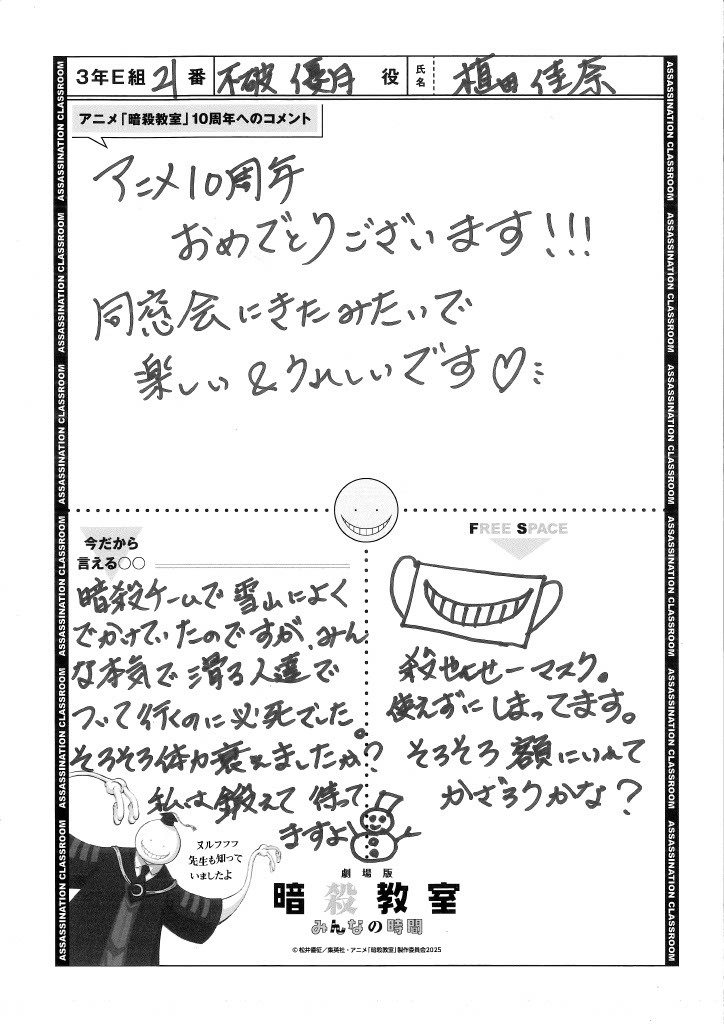 3年E組 21番 不破 優月 役 氏名 植田 佳奈
アニメ「暗殺教室」10周年へのコメント
アニメ10周年
おめでとうございます!!!
同窓会にきたみたいで
楽しい&うれしいです♡
今だから
言える○○
暗殺チームで雪山によく
でかけていたのですが、みん
な本気で滑る人達で
ついて行くのに必死でした。
そろそろ体力衰えましたか?
私は鍛えて待って
ますよ
FREE SPACE
殺せんせーマスク。
使えずにしまってます。
そろそろ額にいれて
かざろうかな?
ヌルフフフ
先生も知って
いましたよ
劇場版
暗殺教室
みんなの時間
© 松井優征/集英社・アニメ「暗殺教室」製作委員会2025
ASSASSINATION CLASSROOM ASSASSINATION CLASSROOM ASSASSINATION CLASSROOM ASSASSINATION CLASSROOM ASSASSINATION CLASSROOM ASSASSINATION CLASSROOM
ASSASSINATION CLASSROOM ASSASSINATION CLASSROOM ASSASSINATION CLASSROOM ASSASSINATION CLASSROOM ASSASSINATION CLASSROOM ASSASSINATION CLASSROOM